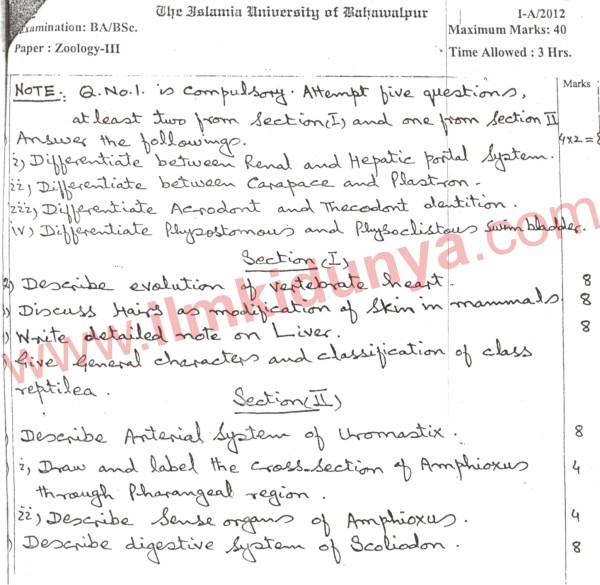 The Islamia University of Bahawalpur
I-A/2012
Examination: BA/BSc.
Maximum Marks: 40
Paper : Zoology-III
Time Allowed : 3 Hrs.
Marks
NOTE:. Q.No.1. is compulsory. Attempt five questions,
at least two from section(I) and one from section II
Answer the followings. 4x2=8
i) Differentiate between Renal and Hepatic portal System.
ii) Differentiate between Carapace and Plastron.
iii) Differentiate Acrodont and Thecodont dentition.
iv) Differentiate Physostomous and Physoclistous swim bladder.
Section (I)
2) Describe evolution of vertebrate heart. 8
) Discuss Hairs as modification of skin in mammals. 8
) Write detailed note on Liver. 8
) Give General characters and classification of class
reptilea.
Section (II)
) Describe Arterial System of Uromastix. 8
) i, Draw and label the cross-section of Amphioxus 4
through Pharangeal region.
ii) Describe Sense organs of Amphioxus. 4
) Describe digestive system of Scoliodon. 8
www.ilmkidunya.com